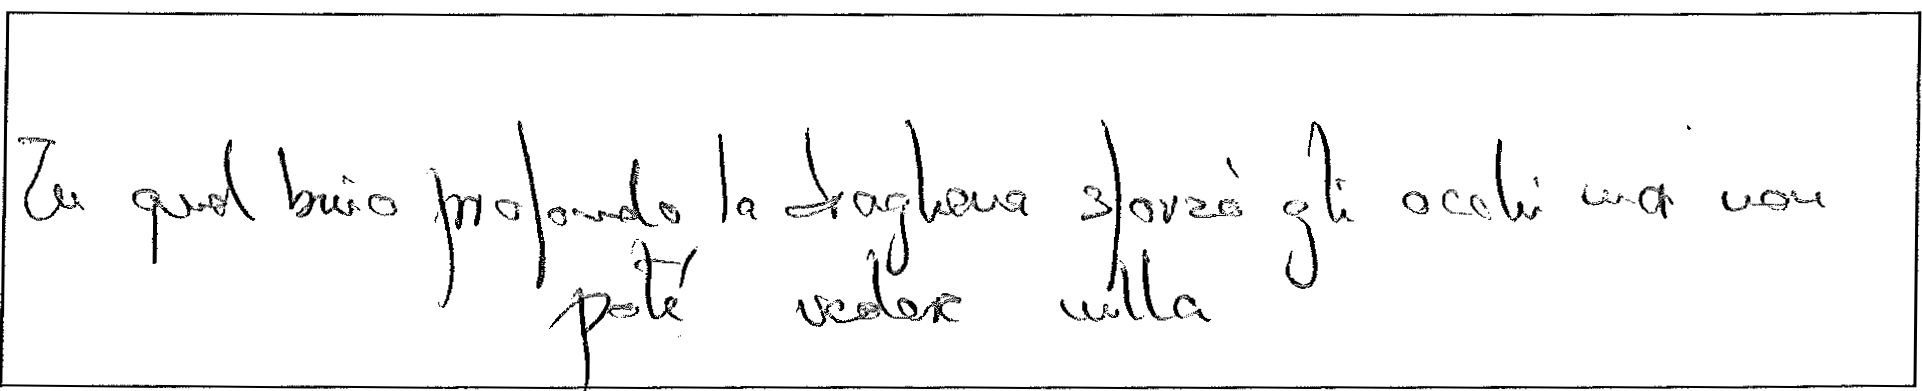 In quel buio profondo la draghena sforzò gli occhi ma non
poté vedere nulla